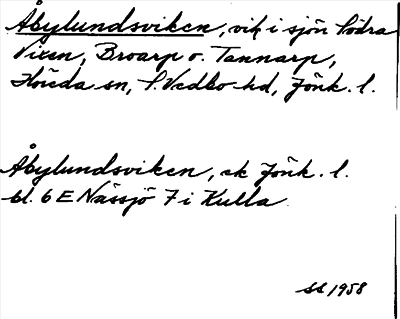 Åbylundsviken, vik i sjön Södra
Vixen, Broarp o. Tannarp,
Flisby sn, S. Vedbo hd, Jönk. l.
Åbylundsviken, ek Jönk. l.
bl. 6 E Nässjö 7 i Kulla
SS 1958